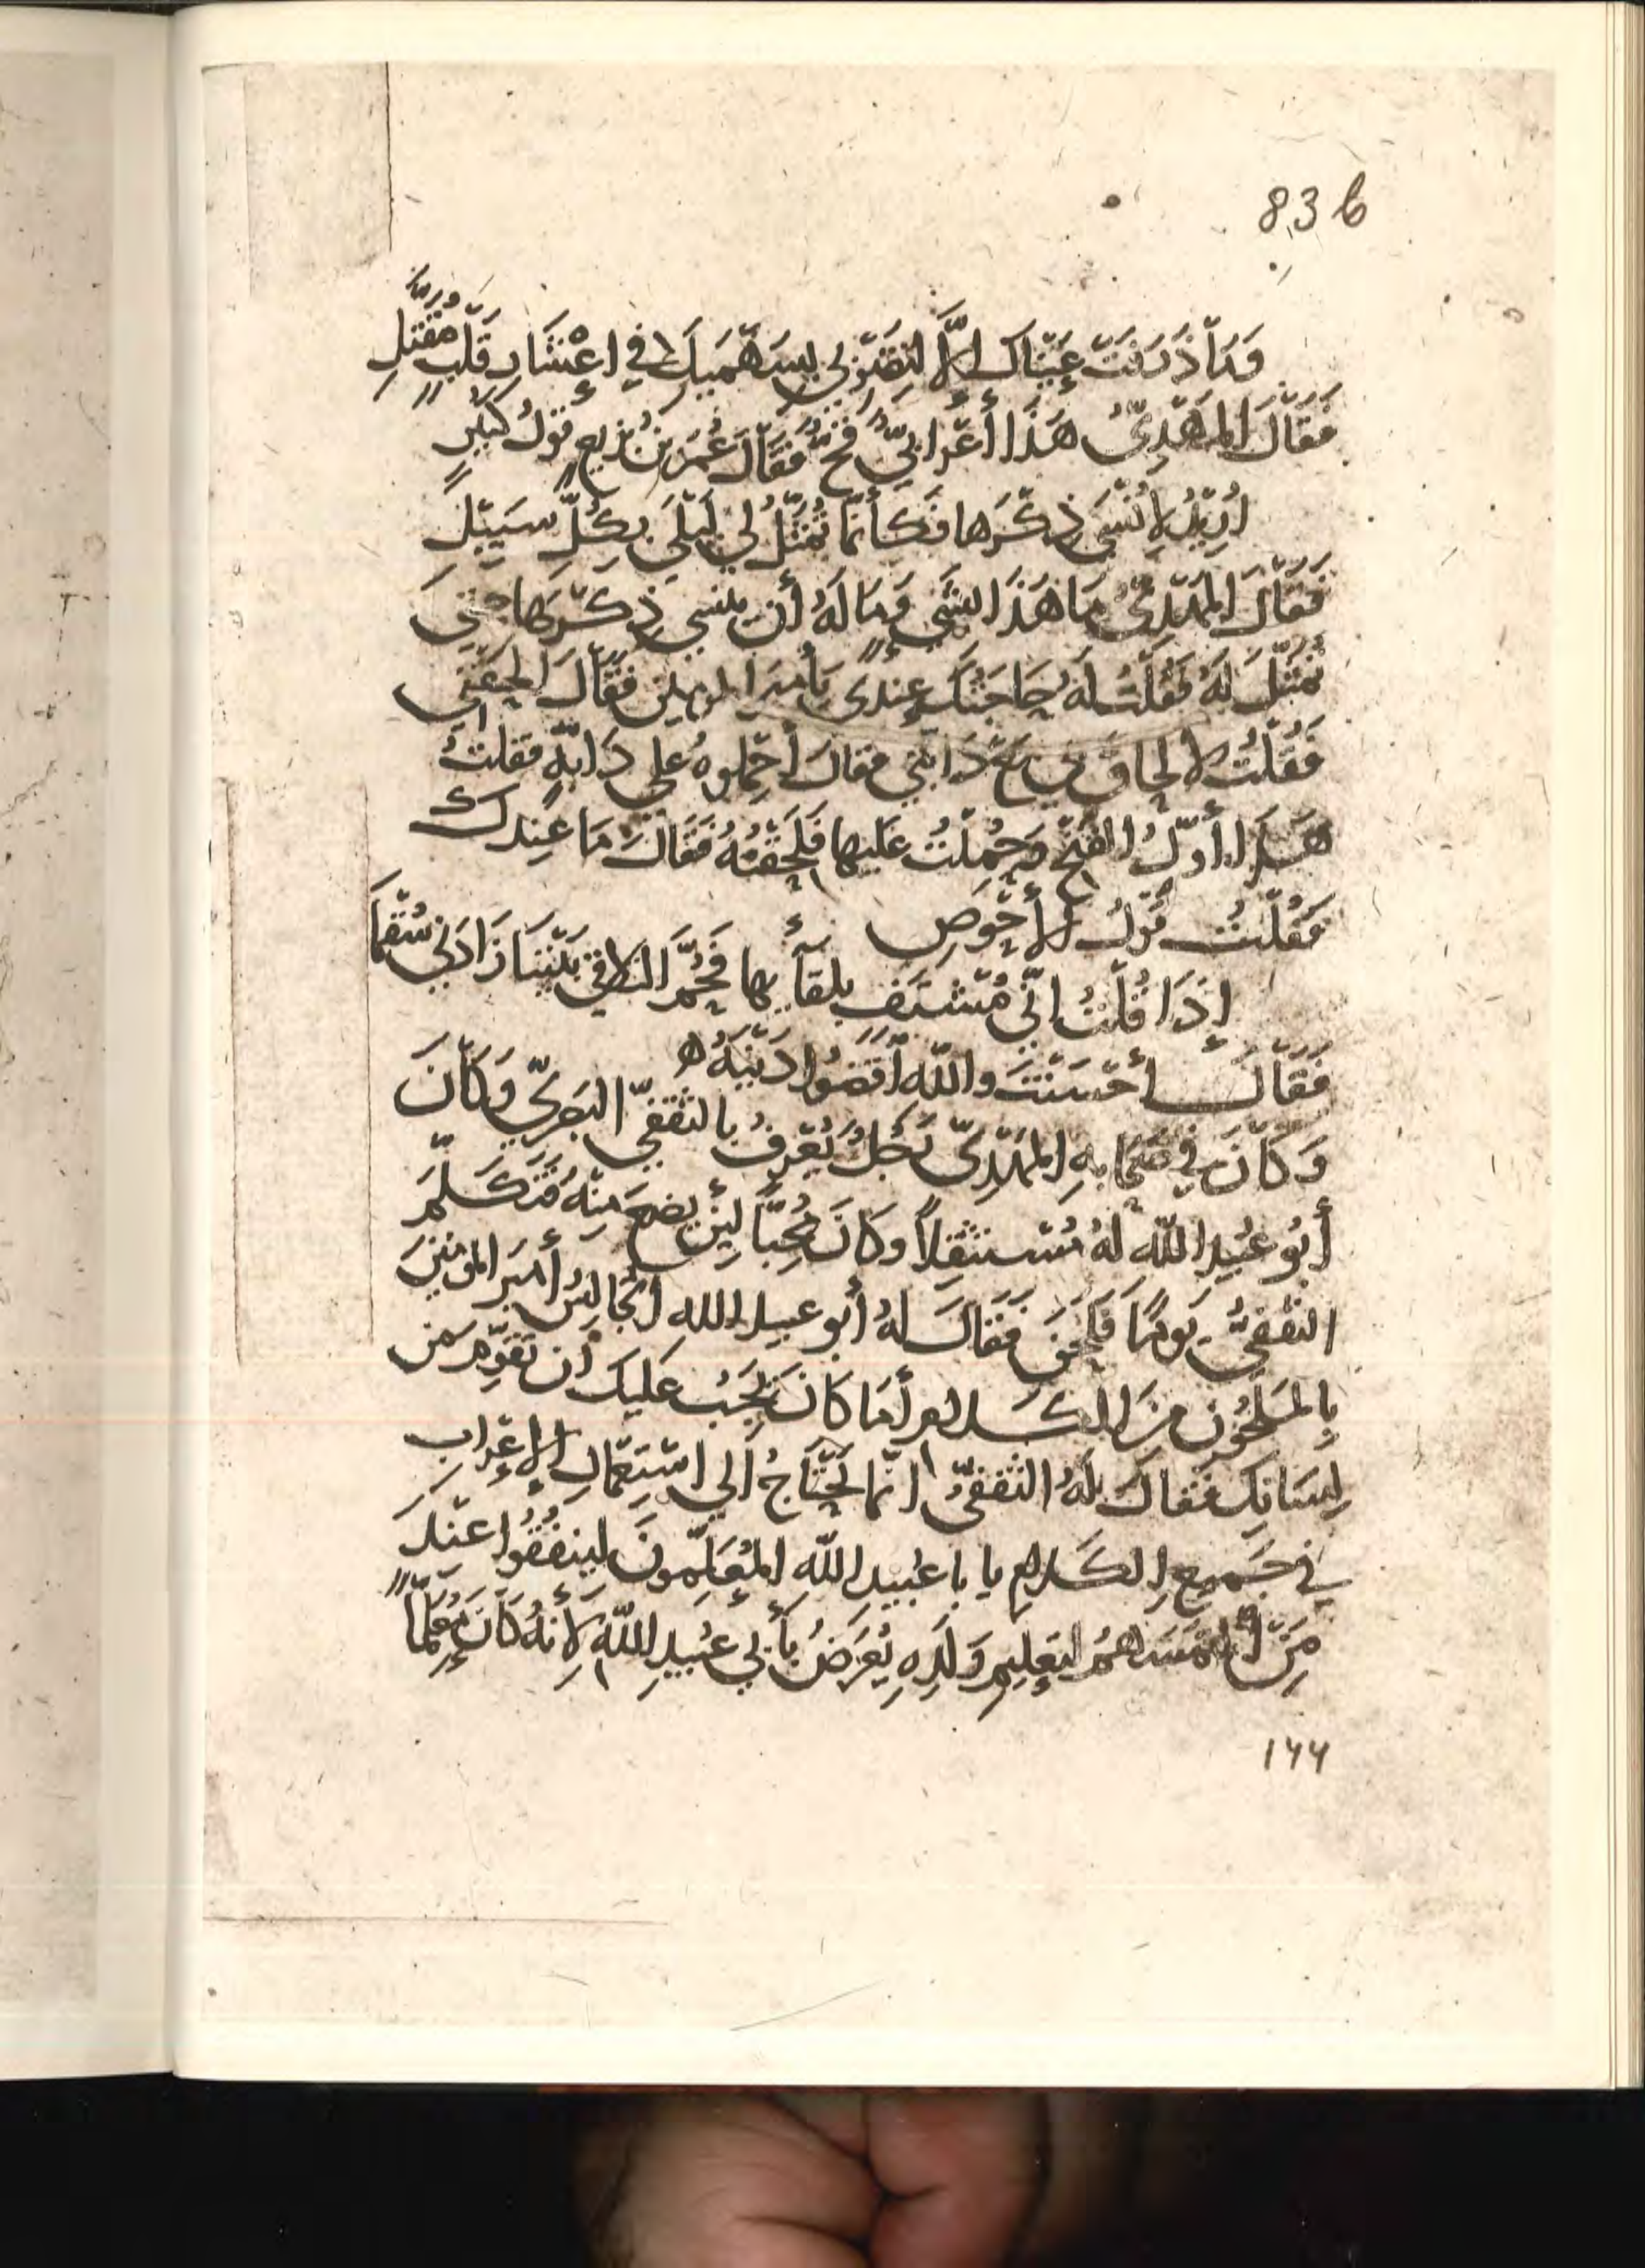 83b
وَمَا ذَرَفَتْ عَيْنَاكِ إلَّا لِتَضْرِبِي بِسَهْمَيْكِ فِي إعْشَارِ قَلْبٍ مُقَتَّلِ
فَقَالَ المَهْدِيُّ هَذَا أَعْرَابِيٌّ قُحٌّ فَقَالَ عُمَرُ بْنُ بَزِيعٍ قَوْلُ كُثَيِّرٍ
اُرِيْدُ لِأَنْسَى ذِكْرَهَا فَكَأَنَّمَا تُمَثَّلُ لِي لَيْلَى بِكُلِّ سَبِيْلِ
فَقَالَ المَهْدِيُّ مَا هَذَا الشَّيْءِ وَمَا لَهُ أَن يَنسى ذِكْرَهَا حَتَّى
تُمَثَّلَ لَهُ فَقُلْتُ لَهُ حَاجَتُكَ عِندِي يَا أميرَ المومنين فَقَالَ الْحَقْنِي
فَقُلْتُ لا لحاقَ بي مَعَ دَابَّتي فقالَ أحْمِلوهُ عَلى دَابَّةٍ فقلتُ
هَذَا أَوَّلُ الفَتْحِ وَحُمِلْتُ عَليها فَلَحِقْتُهُ فَقَالَ مَا عِندكَ
فَقُلْتُ قَوْلُ الأَحْوَصِ
إذَا قُلْتُ إنِّي مُشْتَفٍ بِلقآئها فَحُمَّ التلاقي بَيْنَنَا زَادَنِي سُقْمَا
فَقَالَ أَحْسَنْتَ واللهِ اقْضُوا دَيْنَهُ ه
وَكَانَ فِي صَحَابَةِ المَهْدِيِّ رَجُلٌ يُعْرَفُ بالثَّقَفِيِّ البَصْرِيِّ وَكَانَ
أَبُو عُبَيدِ اللهِ لَهُ مُسْتَثْقِلًا وَكَانَ مُحِبًّا لِئن يَضَعَ مِنْهُ فَتَكَلَّمَ
الثَّقَفِيُّ يَومًا فَلَحَنَ فَقَالَ لَهُ أَبُو عبيد الله اتُجالِسُ أَميرَ المومنينَ
بِالمَلْحُونِ مِنَ الكَلامِ أَمَا كَانَ يَجِبُ عَلَيكَ أَن تُقَوِّمَ مِن
لِسَانِكَ فَقَالَ لَهُ الثَّقَفِيُّ انَّمَا يَحْتَاجُ الَى اسْتِعْمَالِ الإعْرَابِ
في جَمِيعِ الكَلامِ يا با عبيد الله المُعَلِّمُونَ لِينفُقُوا عِنْدَ
مِنَ الْتَمَسَهُمْ لتعليمِ وَلَدِهِ يُعَرِّضُ بِأَبِي عُبَيدِ اللهِ لأَنَّهُ كَانَ مُعَلِّمًا
١٦٦